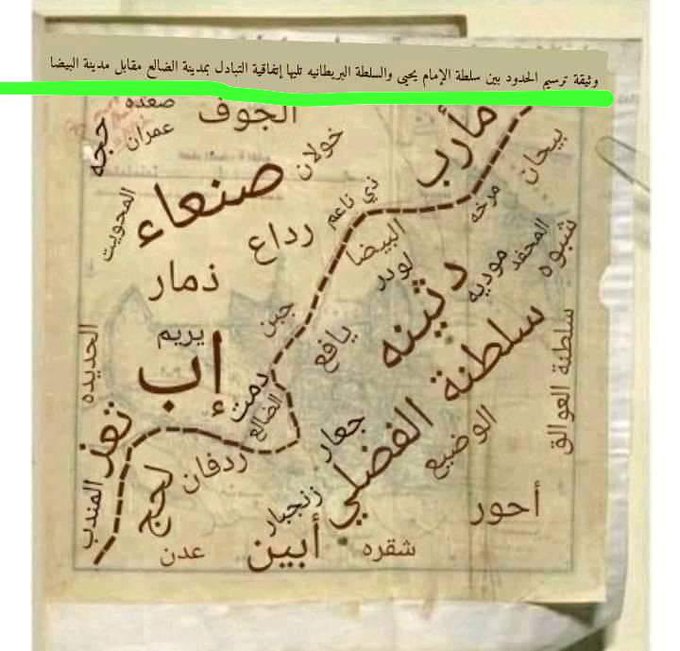 وثيقة ترسيم الحدود بين سلطة الإمام يحيى والسلطة البريطانيه تليها إتفاقية التبادل بمدينة الضالع مقابل مدينة البيضا
صعده
الجوف
مأرب
حجه
عمران
خولان
بيحان
صنعاء
المحويت
ذي ناعم
مرخه
رداع
البيضا
المحفد
شبوه
ذمار
لودر
موديه
دثينه
جبن
يريم
يافع
الحديده
إب
دمت
الضالع
سلطنة الفضلي
سلطنة العوالق
تعز
جعار
الوضيع
ردفان
لحج
المندب
زنجبار
أحور
عدن
أبين
شقره